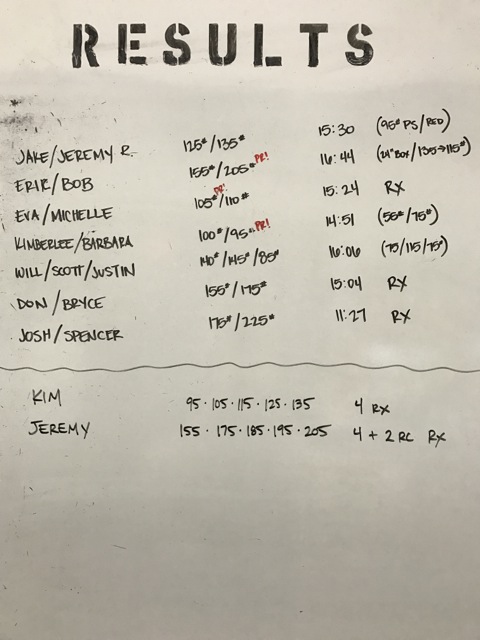 RESULTS
JAKE/JEREMY R. 125#/135# 15:30 (95# PS/RED)
ERIK/BOB 155#/205# PR! 16:44 (24" BOX/135→115#)
EVA/MICHELLE 105# PR!/110# 15:24 RX
KIMBERLEE/BARBARA 100#/95# PR! 14:51 (55#/75#)
WILL/SCOTT/JUSTIN 140#/145#/85# 16:06 (75/115/75#)
DON/BRYCE 155#/175# 15:04 RX
JOSH/SPENCER 175#/225# 11:27 RX
KIM 95·105·115·125·135 4 RX
JEREMY 155·175·185·195·205 4 + 2 RC RX